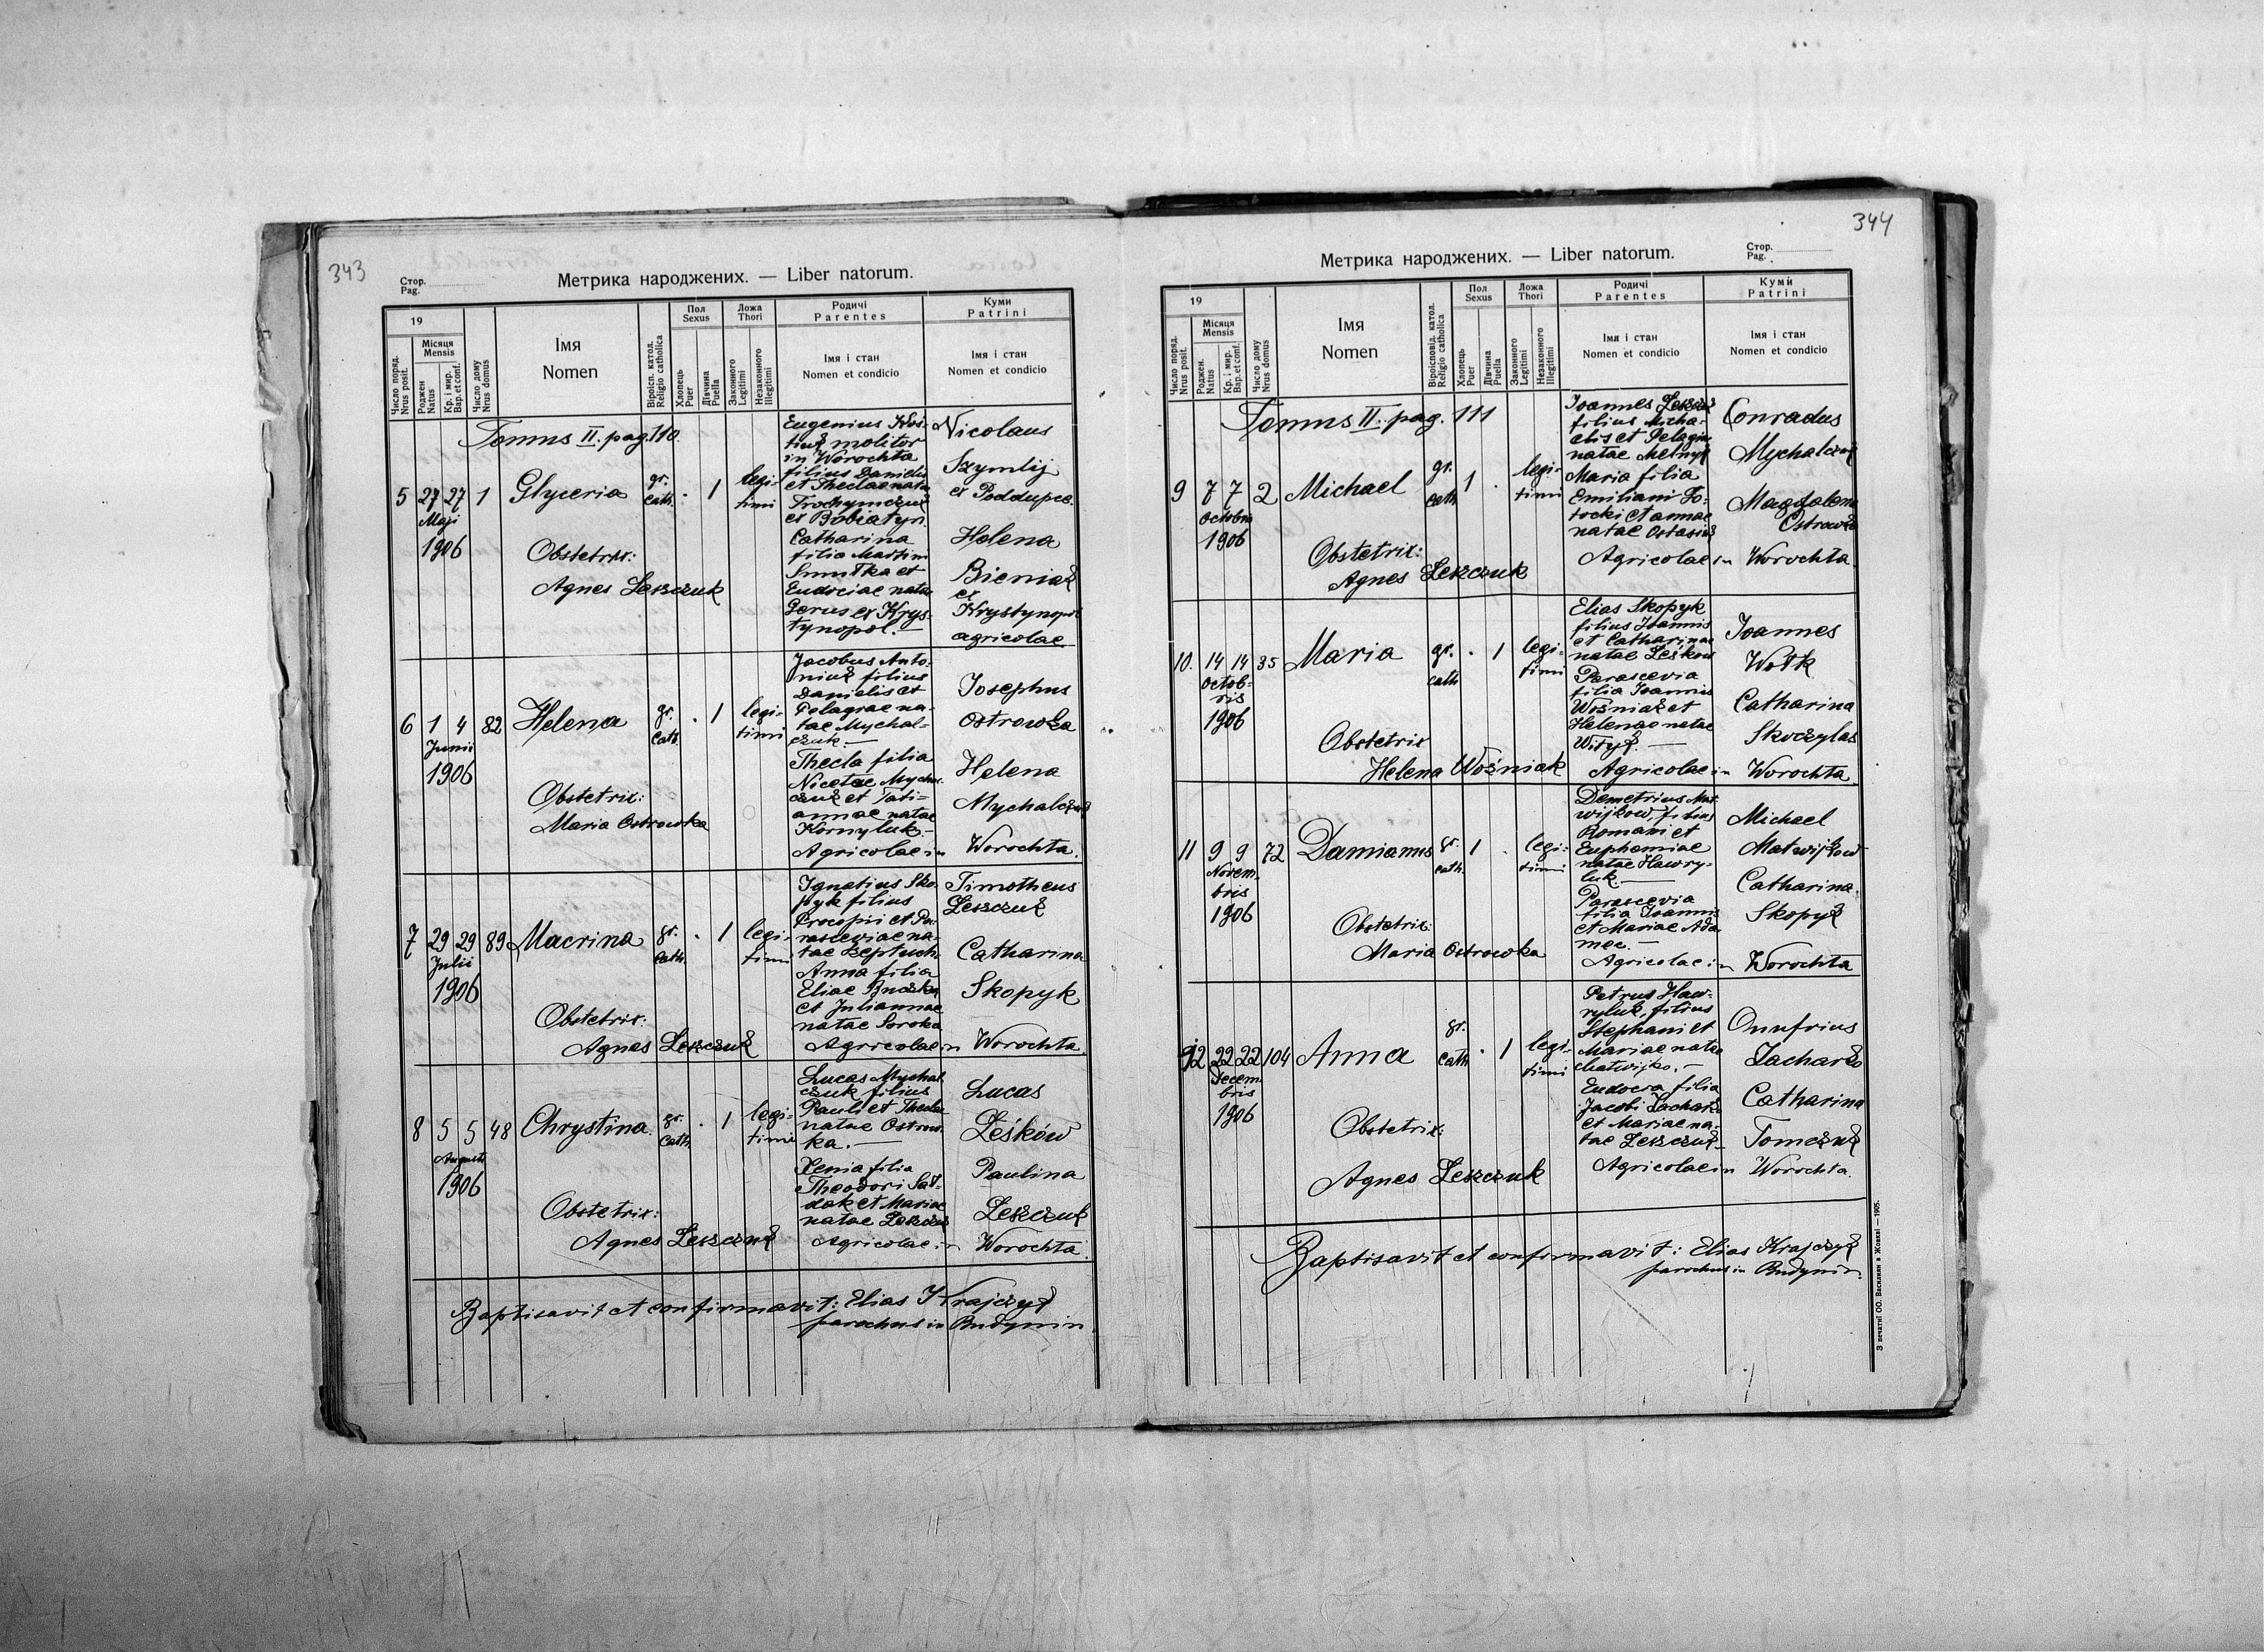 343
Стор.
Pag.
Метрика народжених. — Liber natorum.
19
Число поряд.
Nrus posit.
Місяця
Mensis
Роджен
Natus
Кр. і мир.
Bap. et conf.
Число дому
Nrus domus
Імя
Nomen
Віроісп. катол.
Religio catholica
Пол
Sexus
Хлопець
Puer
Дівчина
Puella
Ложа
Thori
Законного
Legitimi
Незаконного
Illegitimi
Родичі
Parentes
Імя і стан
Nomen et condicio
Куми
Patrini
Імя і стан
Nomen et condicio
Tomus II. pag. 110.
5 27 27 1 Glyceria gr. cath. . 1 legi-
timi
Maji
1906
Obstetrix:
Agnes Leszczuk
Eugenius Kos-
tiuk molitor
in Worochta
filius Danielis
et Theclae natae
Trochymczuk
ex Bobiatyn.
Catharina
filia Martini
Smutka et
Eudociae natae
Gerus ex Krys-
tynopol.—
Nicolaus
Szymlij
ex Poddupce.
Helena
Bieniak
ex
Krystynopol
agricolae
6 1 4 82 Helena gr. cath. . 1 legi-
timi
Junii
1906
Obstetrix:
Maria Ostrowka
Jacobus Anto-
niuk filius
Danielis et
Pelagiae na-
tae Mychal-
czuk.—
Thecla filia
Nicetae Mychal-
czuk et Tati-
annae natae
Kornyluk.—
Agricolae in Worochta.
Iosephus
Ostrowka
Helena
Mychalczuk
7 29 29 89 Macrina gr. cath. . 1 legi-
timi
Julii
1906
Obstetrix:
Agnes Leszczuk
Ignatius Sko-
pyk filius
Procopii et Pa-
rasceviae na-
tae Łeptuch.
Anna filia
Eliae Buczko
et Juliannae
natae Soroka
Agricolae in Worochta.
Timotheus
Leszczuk
Catharina
Skopyk
8 5 5 48 Chrystina gr. cath. . 1 legi-
timi
Augusti
1906
Obstetrix:
Agnes Leszczuk
Lucas Mychal-
czuk filius
Pauli et Theclae
natae Ostrow-
ka.—
Xenia filia
Theodori Sał-
dak et Mariae
natae Leszczuk
Agricolae in Worochta.
Lucas
Leśków
Paulina
Leszczuk
Baptisavit et confirmavit: Elias Krajczyk
parochus in Budynin.
344
Метрика народжених. — Liber natorum.
Стор.
Pag.
19
Число поряд.
Nrus posit.
Місяця
Mensis
Роджен.
Natus
Кр. і мир.
Bap. et conf.
Число дому
Nrus domus
Імя
Nomen
Віроісповід. катол.
Religio catholica
Пол
Sexus
Хлопець
Puer
Дівчина
Puella
Ложа
Thori
Законного
Legitimi
Незаконного
Illegitimi
Родичі
Parentes
Імя і стан
Nomen et condicio
Куми
Patrini
Імя і стан
Nomen et condicio
Tomus II. pag. 111
9 7 7 2 Michael gr. cath. 1 . legi-
timi
Octobris
1906
Obstetrix:
Agnes Leszczuk
Joannes Leszczuk
filius Micha-
elis et Pelagiae
natae Melnyk
Maria filia
Emiliani Po-
tocki et Annae
natae Ostasiuk
Agricolae in Worochta.
Conradus
Mychalczuk
Magdalena
Ostrowka
10. 14 14 35 Maria gr. cath . 1 legi-
timi
Octob-
ris
1906
Obstetrix
Helena Woźniak
Elias Skopyk
filius Joannis
et Catharinae
natae Leśkow
Parascevia
filia Joannis
Woźniak et
Helenae natae
Wityk.—
Agricolae in Worochta.
Joannes
Wołk
Catharina
Skoczylas
11 9 9 72 Damianus gr. cath. 1 . legi-
timi
Novem-
bris
1906
Obstetrix:
Maria Ostrowka
Demetrius Mat-
wijkow, filius
Romani et
Euphemiae
natae Hawry-
luk.—
Parascevia
filia Joannis
et Mariae Ada-
mec.—
Agricolae in Worochta
Michael
Matwijkow
Catharina
Skopyk
12 22 22 104 Anna gr. cath. . 1 legi-
timi
Decem-
bris
1906
Obstetrix:
Agnes Leszczuk
Petrus Haw-
ryluk, filius
Stephani et
Mariae natae
Matwijko.—
Eudocia filia
Jacobi Zacharko
et Mariae na-
tae Leszczuk.
Agricolae in Worochta.
Onufrius
Zacharko
Catharina
Tomczuk
Baptisavit et confirmavit: Elias Krajczyk
parochus in Budynin.
З печатні ОО. Василиян в Жовкві — 1905.